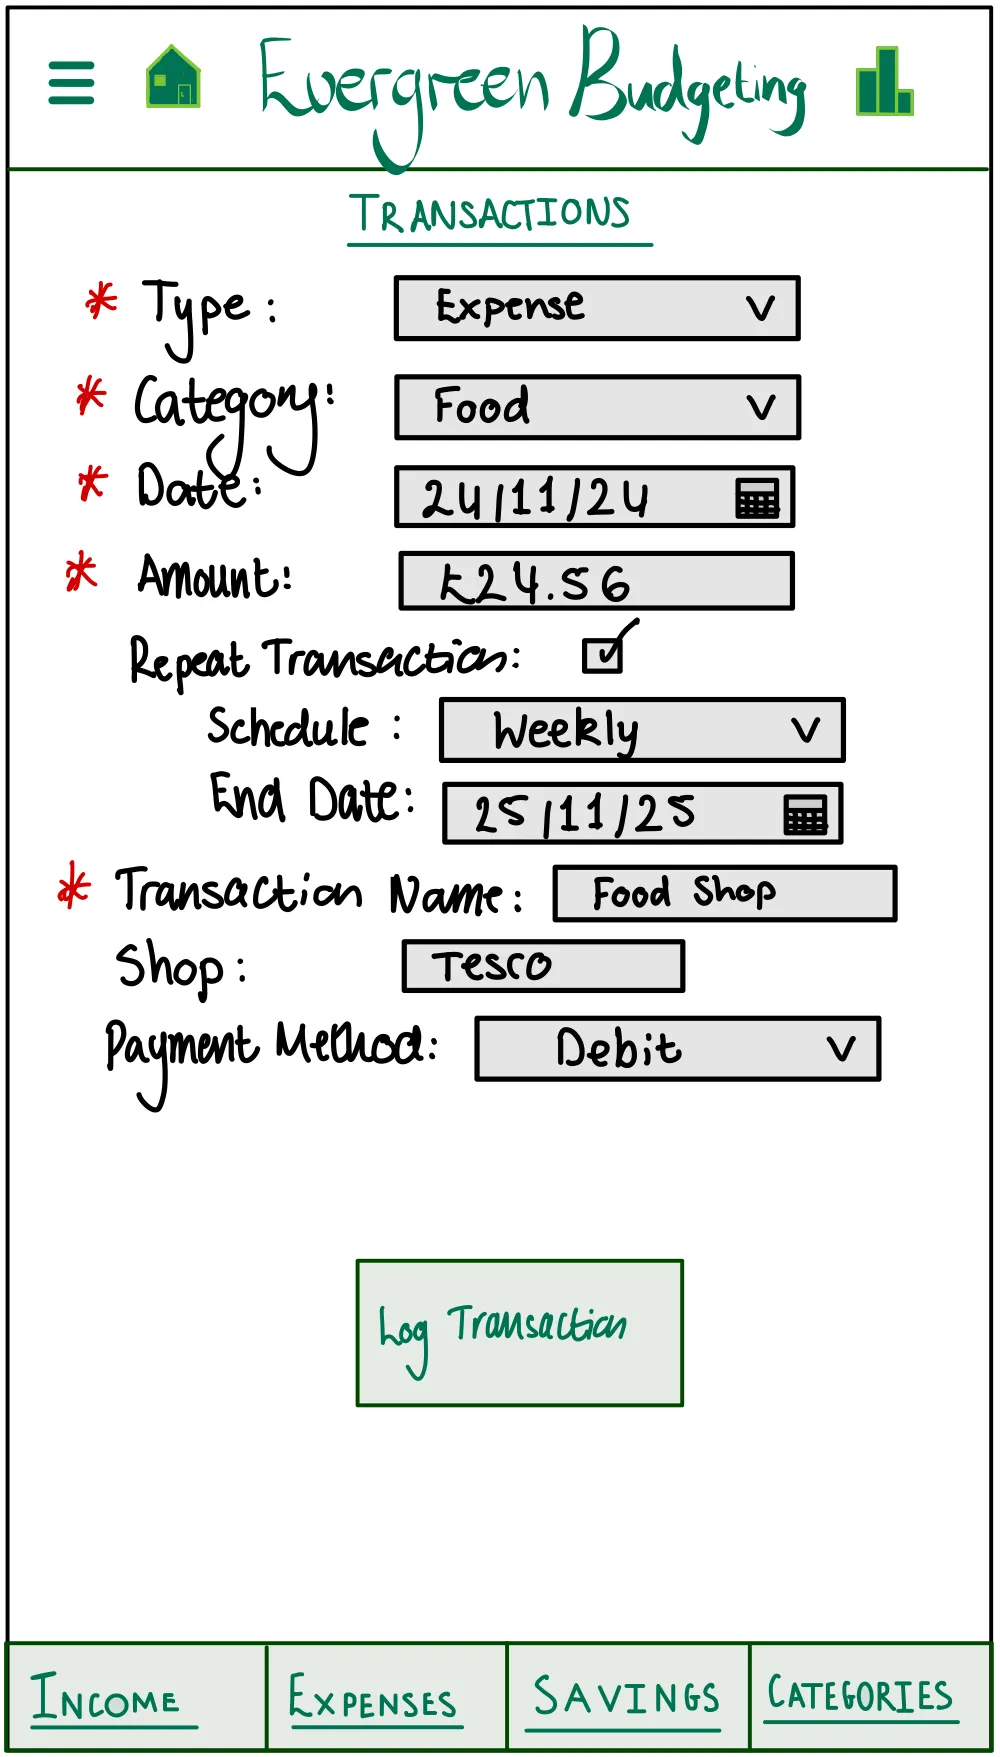 Evergreen Budgeting
TRANSACTIONS
* Type: Expense
* Category: Food
* Date: 24/11/24
* Amount: £24.56
Repeat Transaction:
Schedule: Weekly
End Date: 25/11/25
* Transaction Name: Food Shop
Shop: Tesco
Payment Method: Debit
Log Transaction
INCOME EXPENSES SAVINGS CATEGORIES